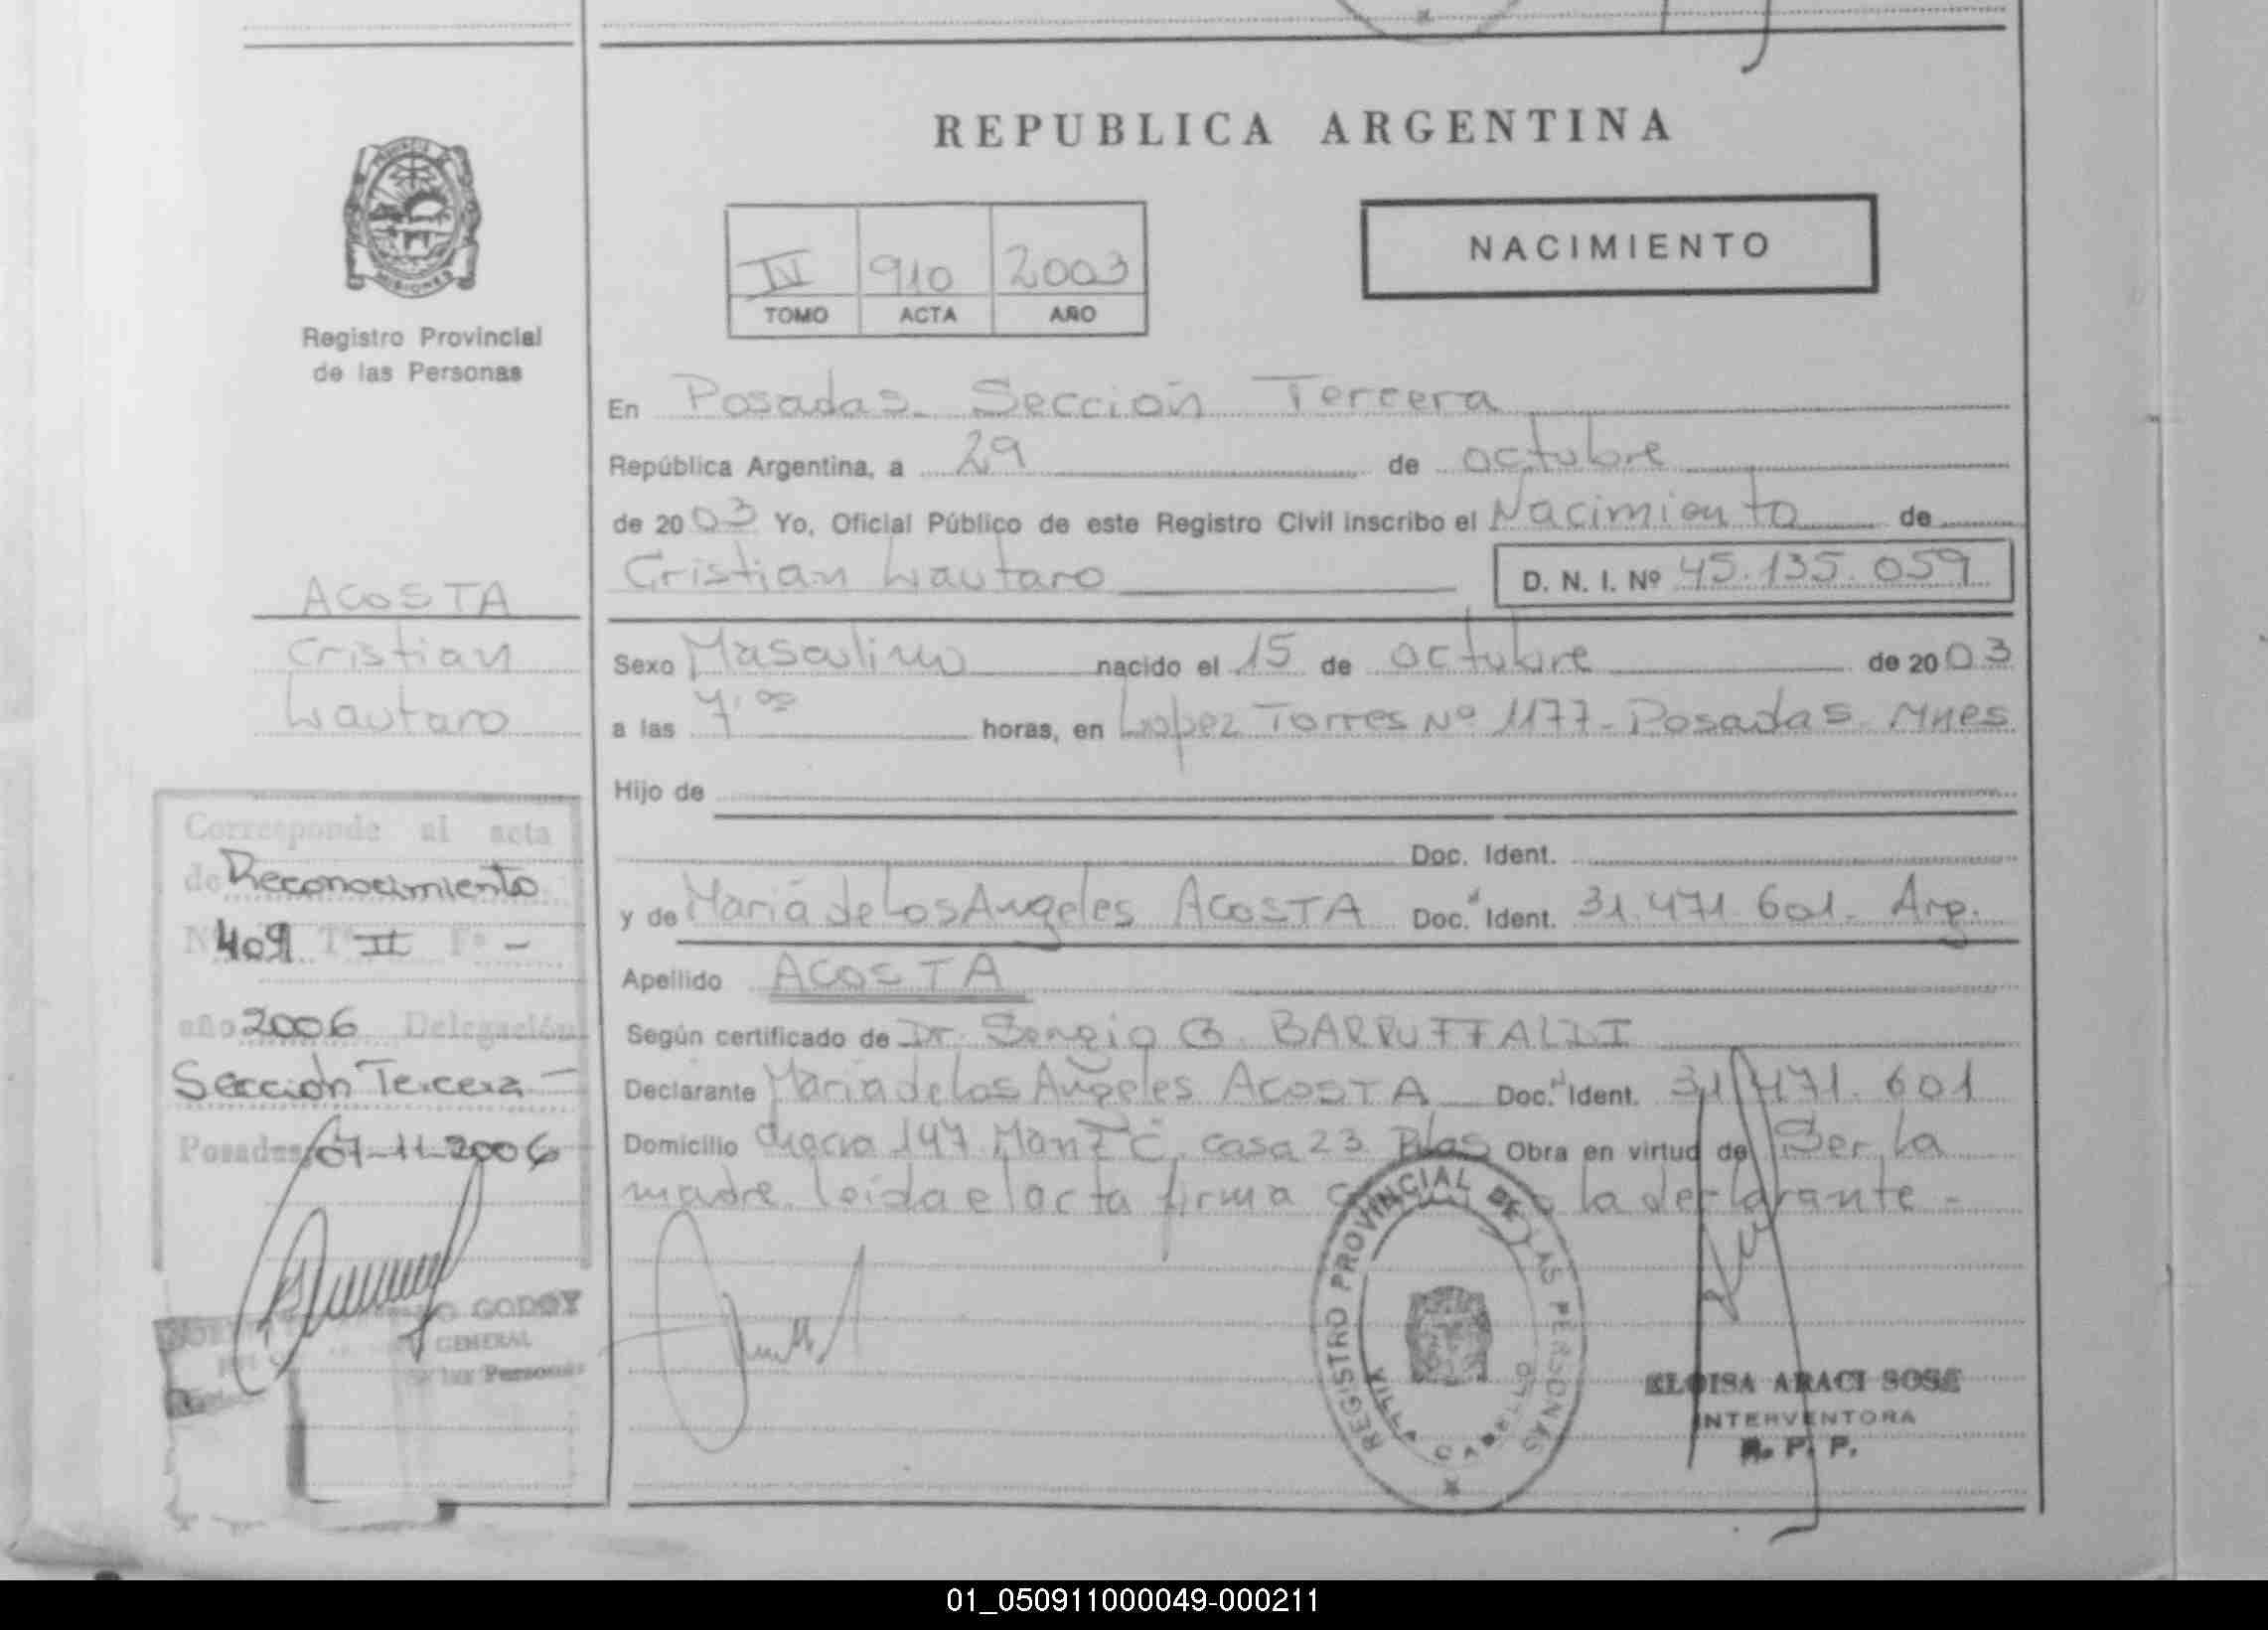 REPUBLICA ARGENTINA
PROVINCIA DE
MISIONES
Registro Provincial
de las Personas
IV 910 2003
TOMO ACTA AÑO
NACIMIENTO
En Posadas. Sección Tercera
República Argentina, a 29 de octubre
de 2003 Yo, Oficial Público de este Registro Civil inscribo el Nacimiento de
Cristian Lautaro D. N. I. Nº 45.135.059
Sexo Masculino nacido el 15 de octubre de 2003
a las 7,00 horas, en Lopez Torres Nº 1177 - Posadas. Mnes
Hijo de
Doc. Ident.
y de Maria de Los Angeles ACOSTA Doc. Ident. 31.471.601. Arg.
Apellido ACOSTA
Según certificado de Dr. Sergio G. BARRUFFALDI
Declarante Maria de Los Angeles ACOSTA Doc. Ident. 31.471.601
Domicilio chacra 147 Manz C. casa 23 Pdas Obra en virtud de Ser la
madre. leida el acta firma la declarante -
REGISTRO PROVINCIAL DE LAS PERSONAS
VILLA CABELLO
ELOISA ARACI SOSE
INTERVENTORA
R. P. P.
ACOSTA
Cristian
Lautaro
Corresponde al acta
de Reconocimiento
Nº 409 Tº II Fº -
año 2006 Delegación
Sección Tercera -
Posadas, 07-11-2006
GODOY
GENERAL
de las Personas
01_050911000049-000211